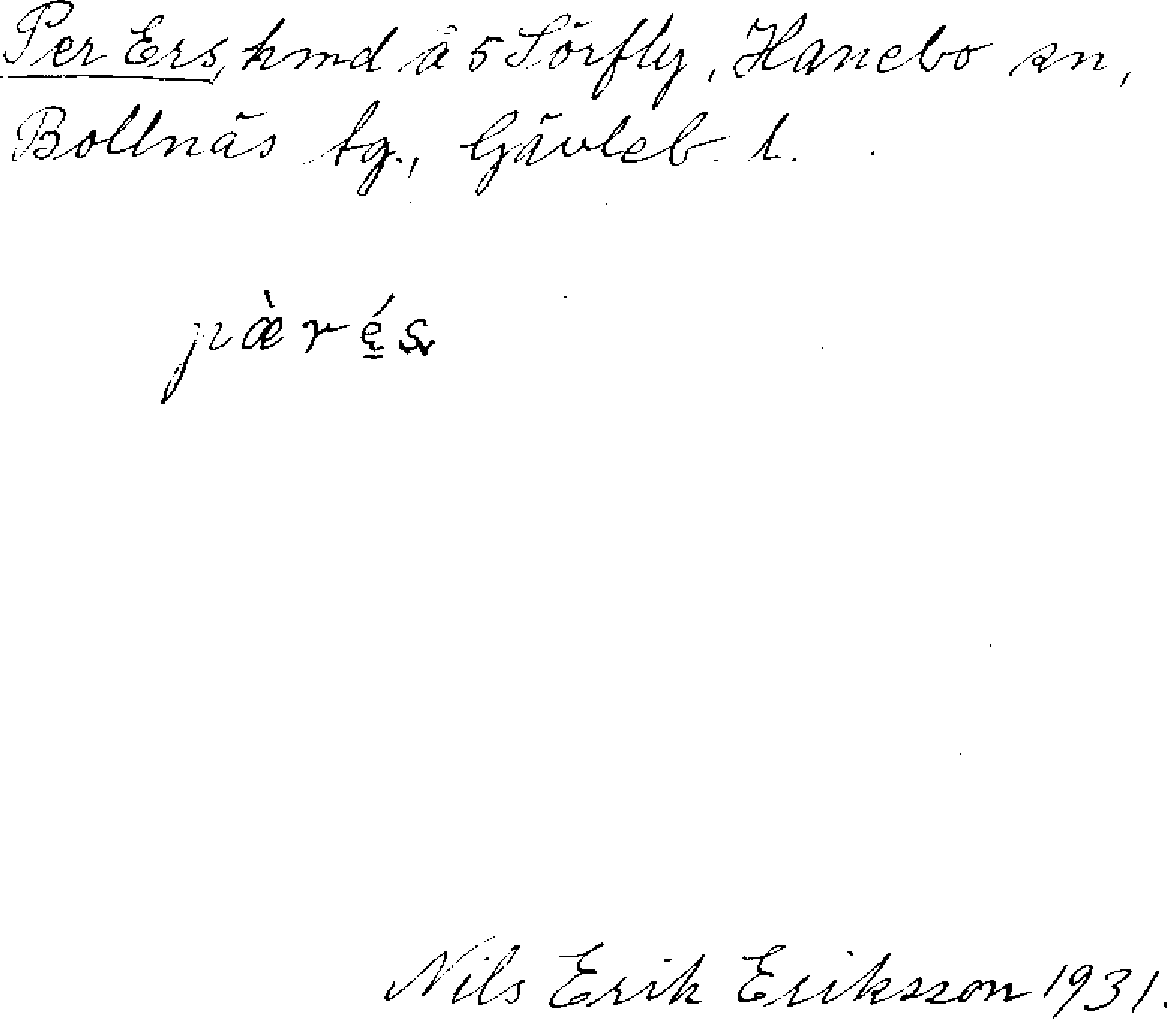 Per Ers, hmd å 5 Sörfly, Hanebo sn,
Bollnäs tg., Gävleb. l.
pæ̀rę́s
Nils Erik Eriksson 1931.